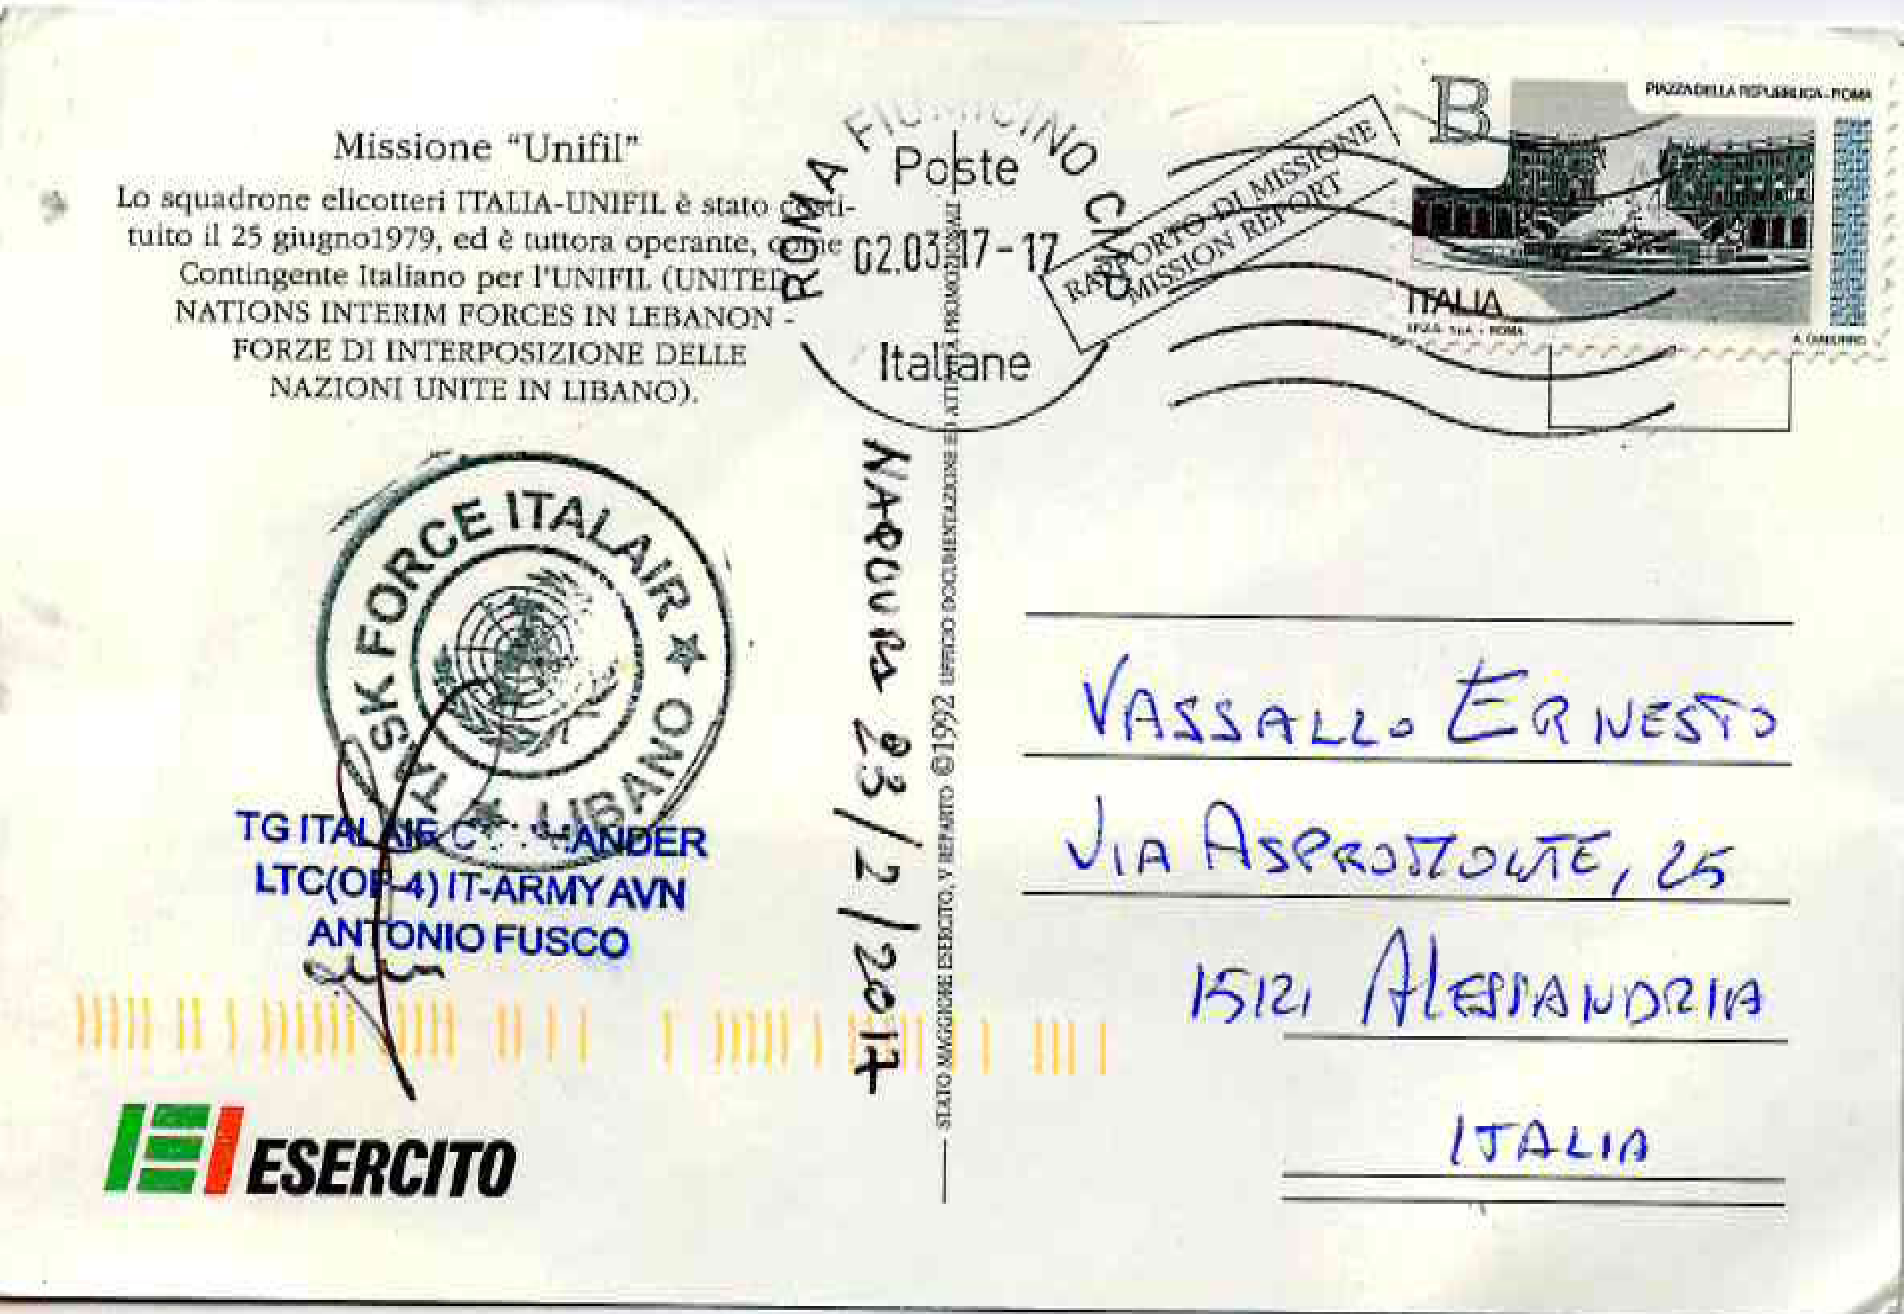 Missione "Unifil"
Lo squadrone elicotteri ITALIA-UNIFIL è stato costi-
tuito il 25 giugno1979, ed è tuttora operante, come
Contingente Italiano per l'UNIFIL (UNITED
NATIONS INTERIM FORCES IN LEBANON -
FORZE DI INTERPOSIZIONE DELLE
NAZIONI UNITE IN LIBANO).
ROMA FIUMICINO CMP
Poste
02.03.17-17
Italiane
RAPPORTO DI MISSIONE
MISSION REPORT
B
PIAZZA DELLA REPUBBLICA - ROMA
ITALIA
TASK FORCE ITALAIR ★ LIBANO ★
TG ITALAIR COMMANDER
LTC(OF-4) IT-ARMY AVN
ANTONIO FUSCO
NAQOURA 23/2/2017
STATO MAGGIORE ESERCITO, V REPARTO ©1992 UFFICIO DOCUMENTAZIONE ED ATTIVITÀ PROMOZIONALI
VASSALLO ERNESTO
VIA ASPROMONTE, 25
15121 ALESSANDRIA
ITALIA
ESERCITO